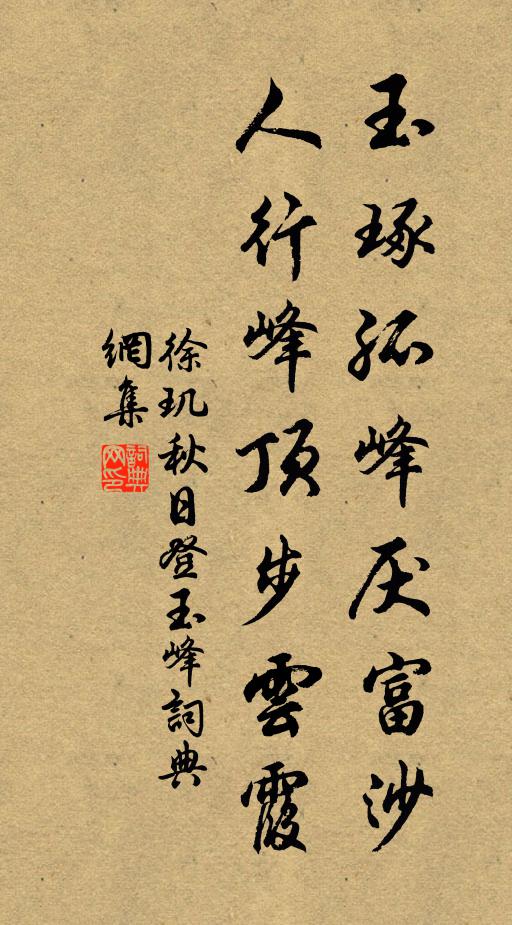 玉琢孤峰厌富沙
人行峰顶步雲霞
徐玑秋日登玉峰詞典
網集
詞典網印